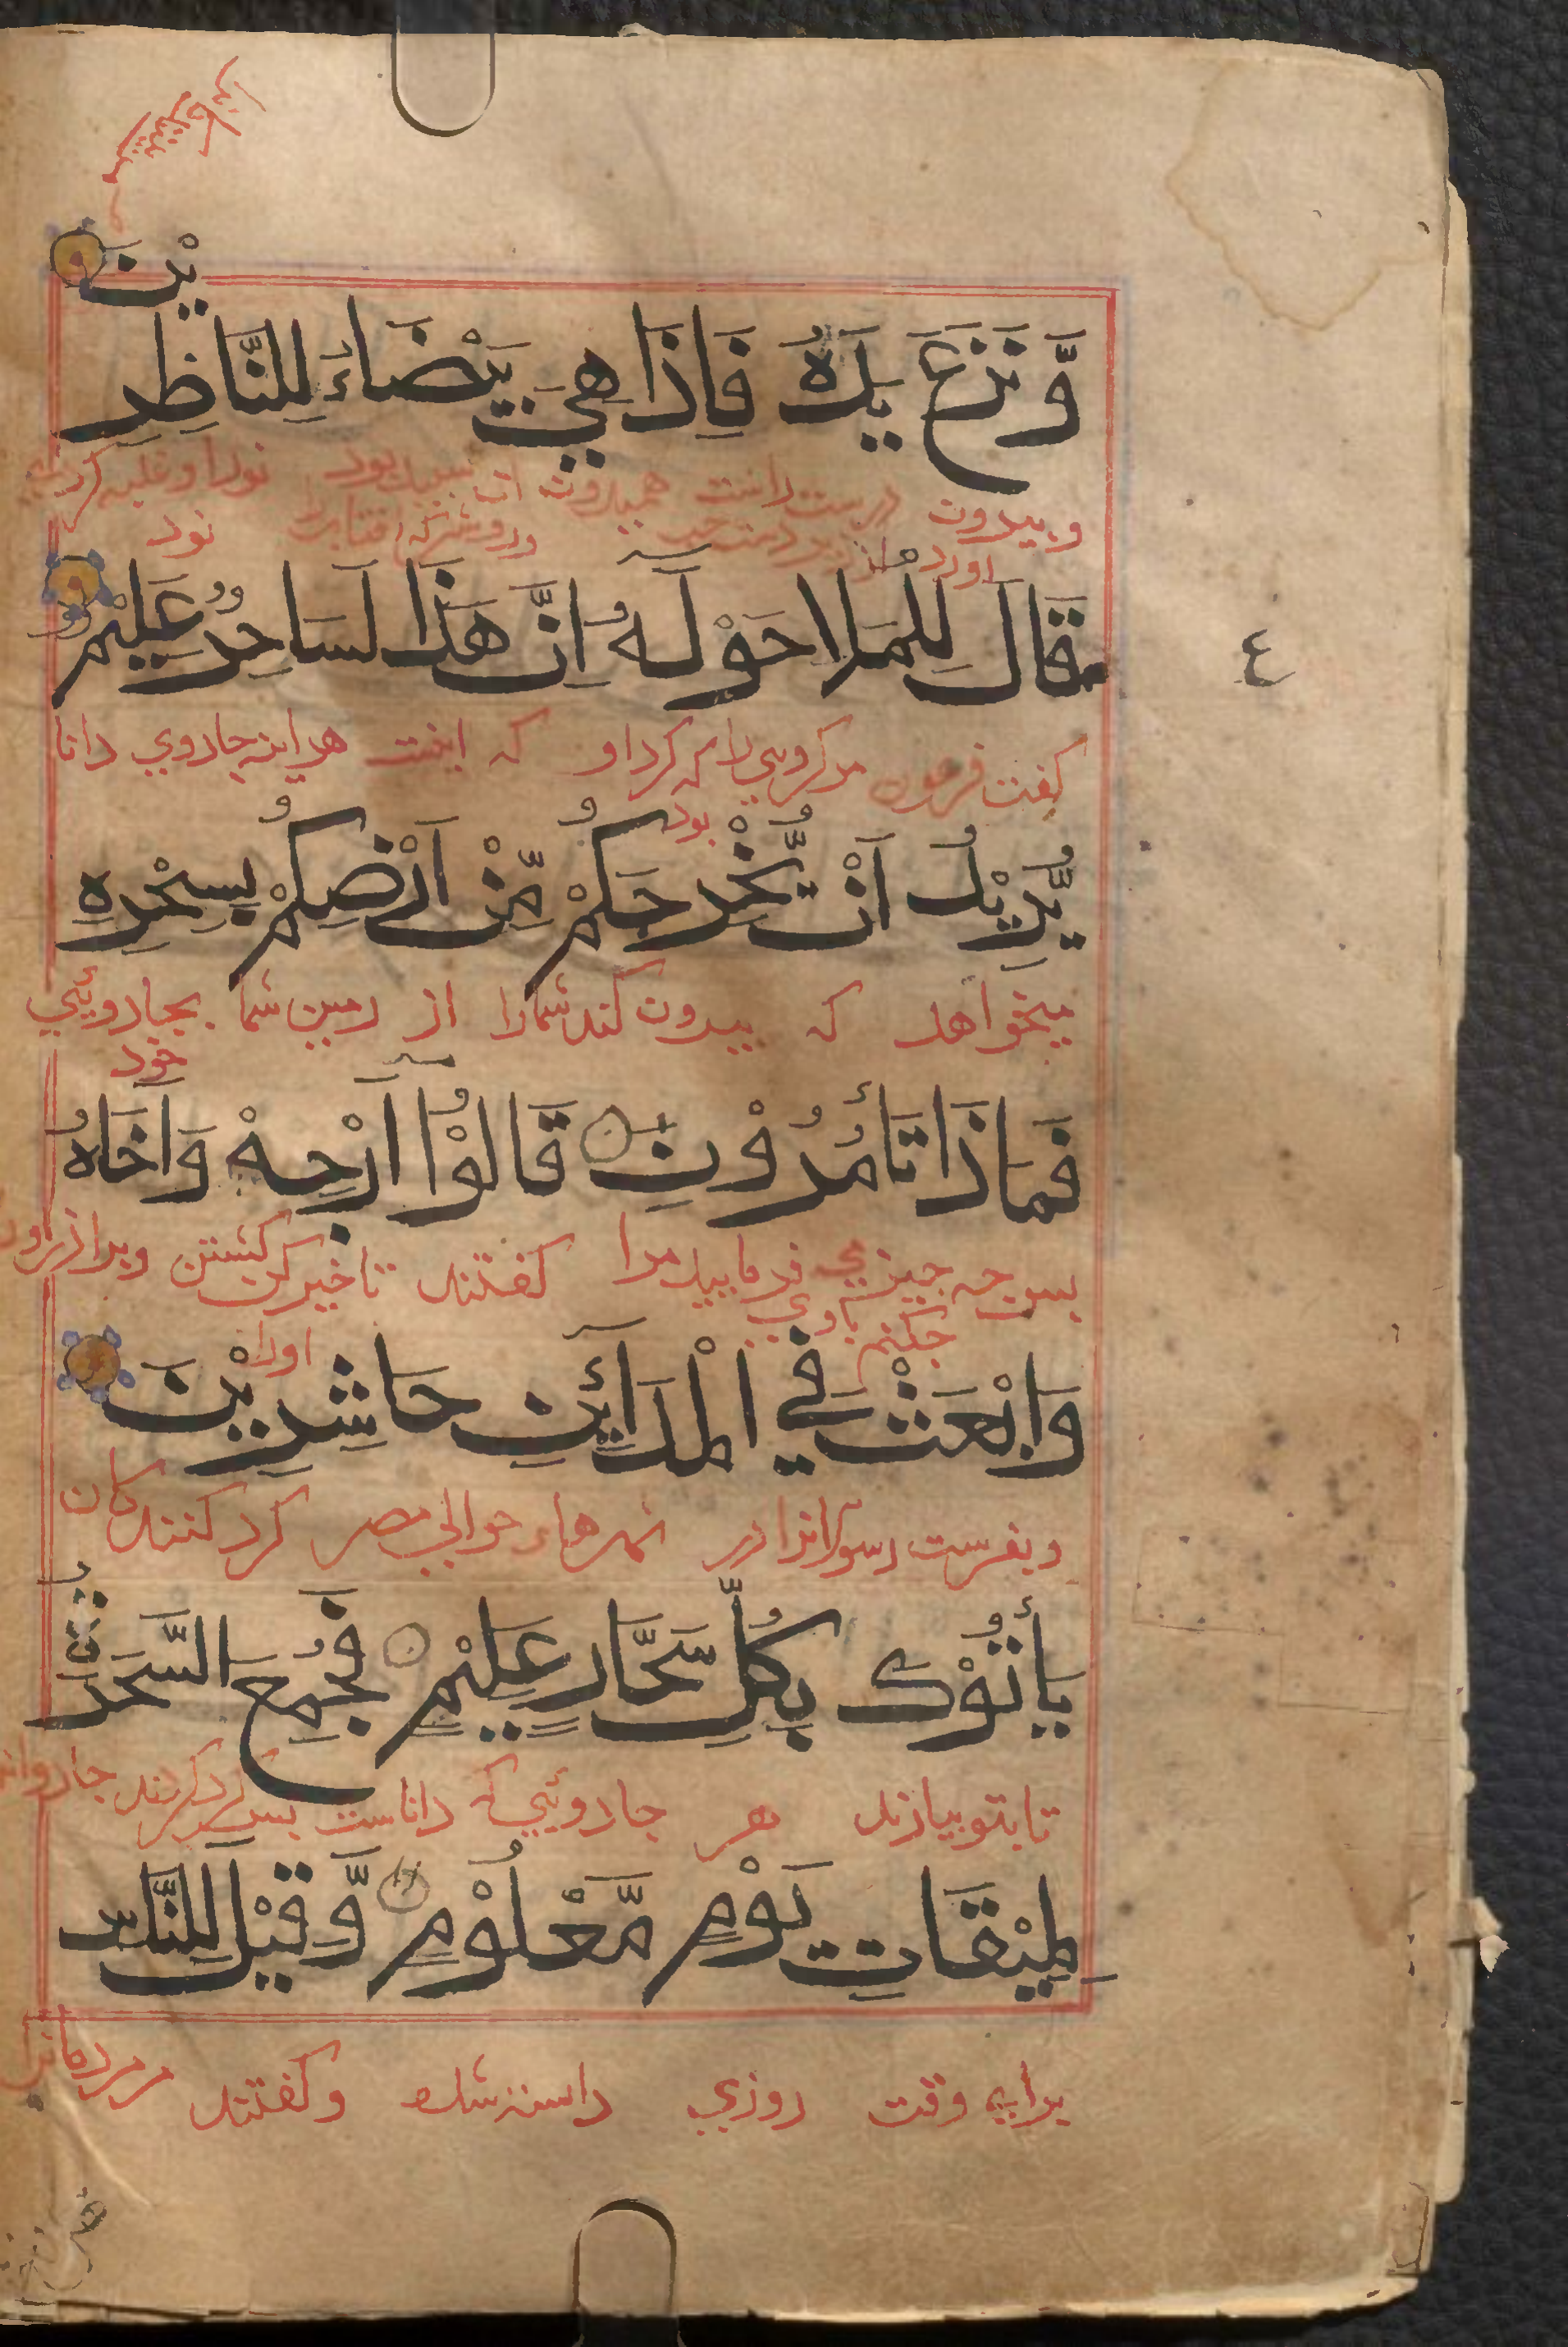 وَّنَزَعَ يَدَهُ فَاِذَا هِيَ بَيْضَاءُ لِلنَّاظِرِ
يْنَ
وبيرون دست راست همیدون ان سپید بود
اورد از زیر نود
قَالَ لِلْمَلَاِ حَوْلَهُ اِنَّ هٰذَا لَسَاحِرٌ عَلِيْمٌ
٤
كفت فرعون مر کروهی را که کرد او که اینت هراینه جادوي دانا
بود
يُّرِيْدُ اَنْ يُّخْرِجَكُمْ مِّنْ اَرْضِكُمْ بِسِحْرِهٖ
میخواهد که بیرون کند شمارا از زمین شما بجادوئیي
خود
فَمَاذَا تَأْمُرُوْنَ قَالُوْا اَرْجِهْ وَاَخَاهُ
بس چه چیزي فرمایید مرا کفتند تاخیر کن کشتن ویرا
چکنم باوي اورا
وَابْعَثْ فِي الْمَدَائِنِ حَاشِرِيْنَ
وبفرست رسولانرا در شهرهاء حوالي مصر کرد کنندکان
يَأْتُوْكَ بِكُلِّ سَحَّارٍ عَلِيْمٍ فَجُمِعَ السَّحَرَةُ
تا بتو بیارند هر جادوئیي که داناست بس کرد کردند جادوان
لِمِيْقَاتِ يَوْمٍ مَّعْلُوْمٍ وَّقِيْلَ لِلنَّاسِ
براي وقت روزي دانسته شده وکفتند مر مردمانرا